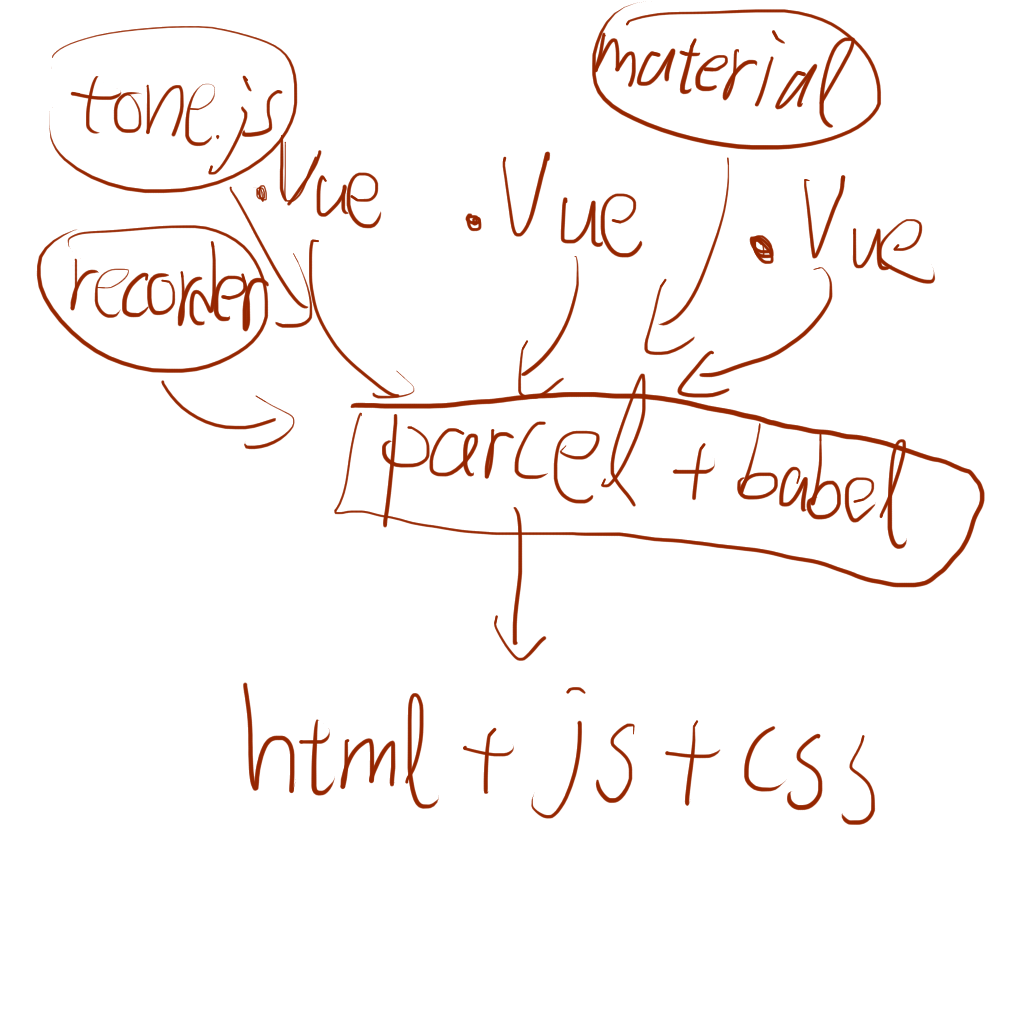 tone.js
material
.Vue
.Vue
.Vue
recorder
parcel + babel
html + js + css